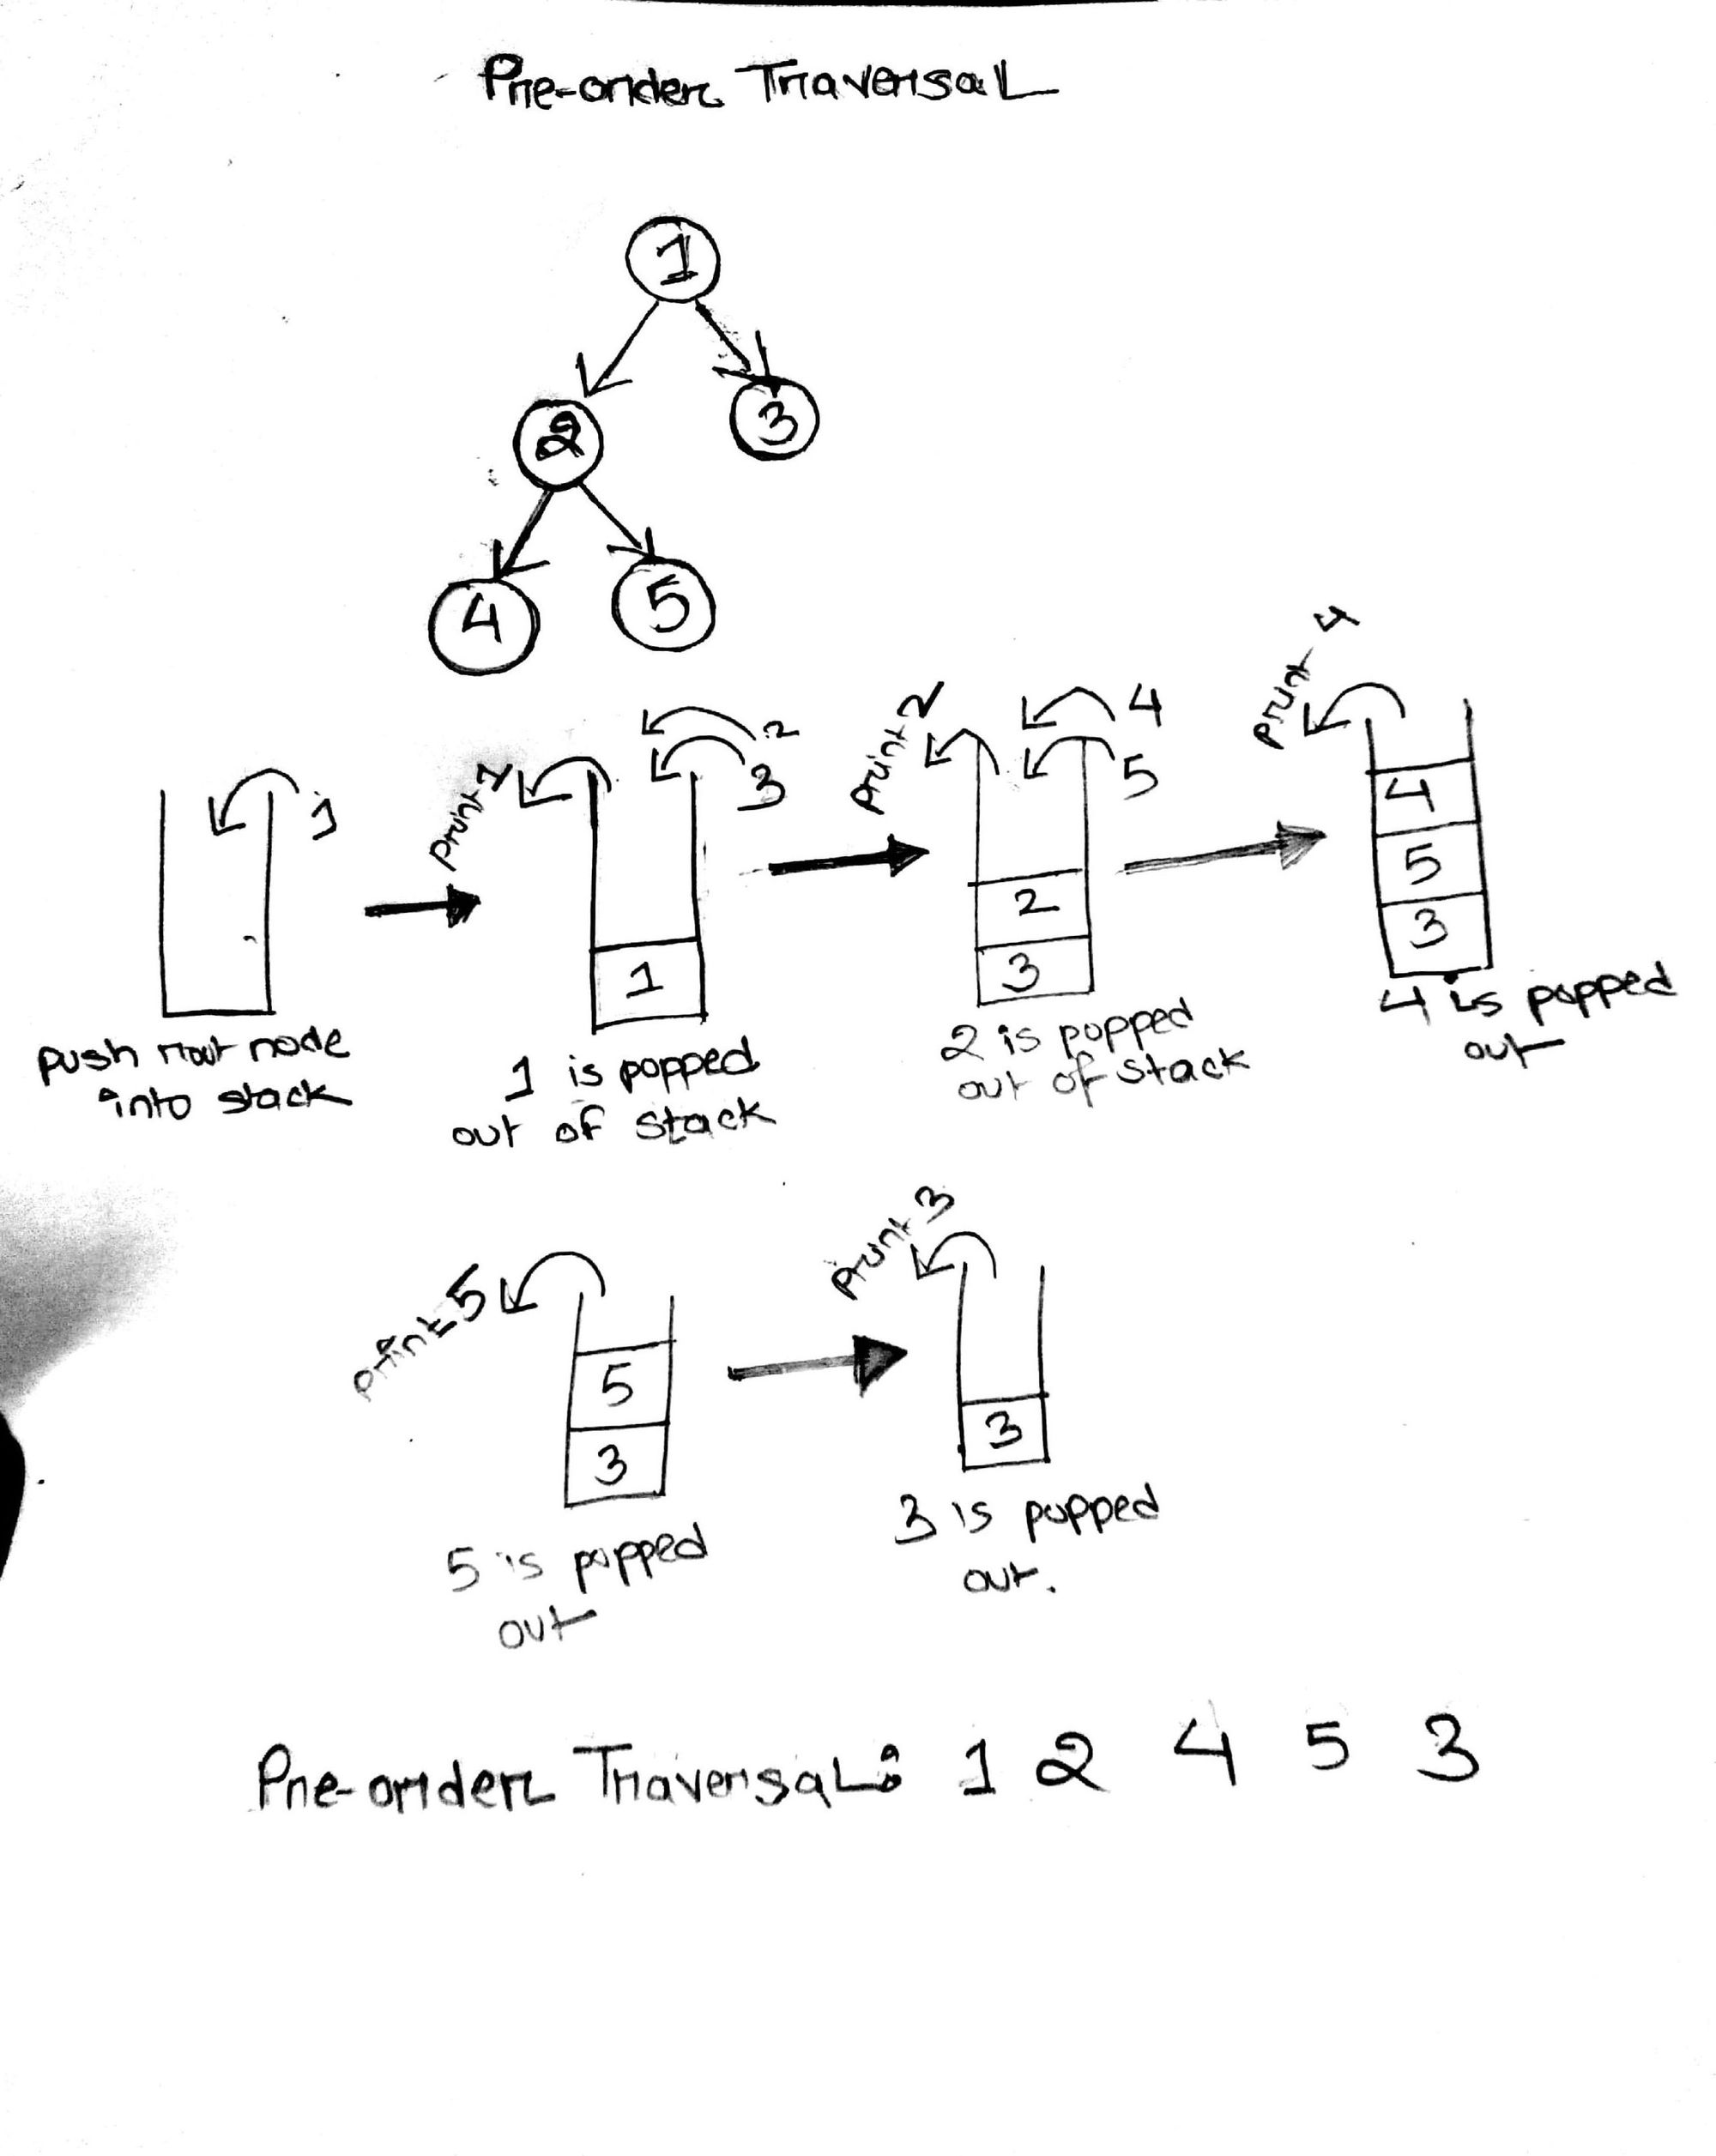 Pre-order Traversal
1
2
3
4
5
1
push root node
into stack
print 1
2
3
1
1 is popped
out of stack
print 2
4
5
2
3
2 is popped
out of stack
print 4
4
5
3
4 is popped
out
print 5
5
3
5 is popped
out
print 3
3
3 is popped
out.
Pre-order Traversal: 1 2 4 5 3